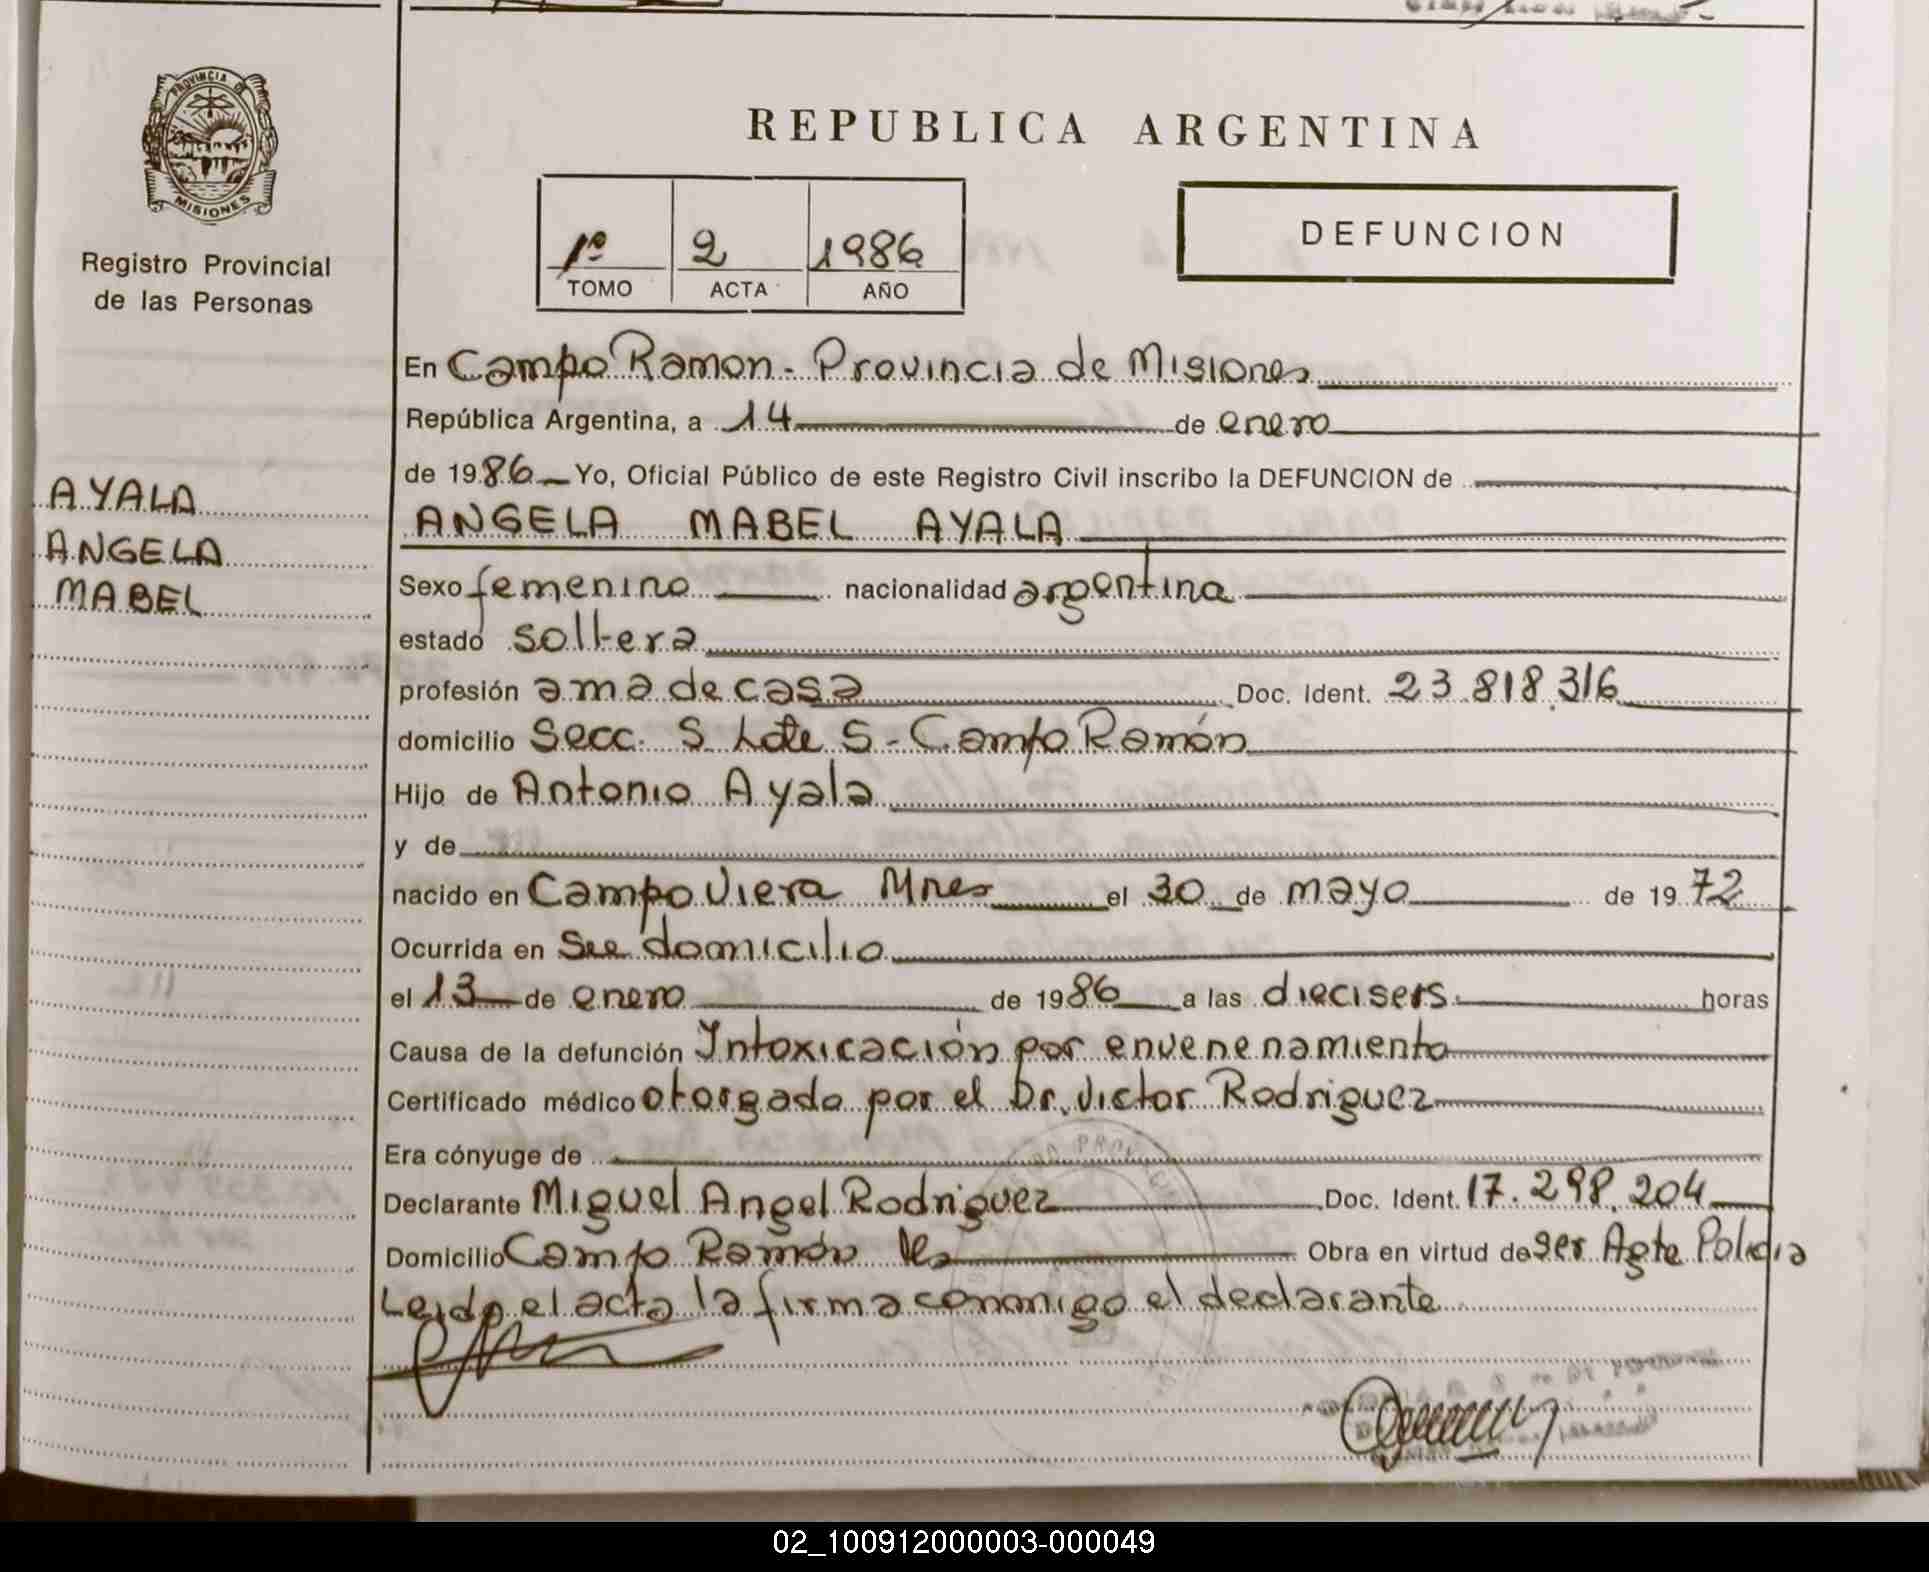 PROVINCIA DE
MISIONES
Registro Provincial
de las Personas
AYALA
ANGELA
MABEL
REPUBLICA ARGENTINA
1º 2 1986
TOMO ACTA AÑO
DEFUNCION
En Campo Ramon - Provincia de Misiones
República Argentina, a 14 de enero
de 1986 Yo, Oficial Público de este Registro Civil inscribo la DEFUNCION de
ANGELA MABEL AYALA
Sexo femenino nacionalidad argentina
estado soltera
profesión ama de casa Doc. Ident. 23.818.316
domicilio Secc. S Lote S - Campo Ramón
Hijo de Antonio Ayala
y de
nacido en Campo Viera Mnes el 30 de mayo de 1972
Ocurrida en Su domicilio
el 13 de enero de 1986 a las dieciseis horas
Causa de la defunción Intoxicación por envenenamiento
Certificado médico otorgado por el Dr. Victor Rodriguez
Era cónyuge de
Declarante Miguel Angel Rodriguez Doc. Ident. 17.298.204
Domicilio Campo Ramón Obra en virtud de ser Agte Policia
Leida el acta la firma conmigo el declarante
02_100912000003-000049